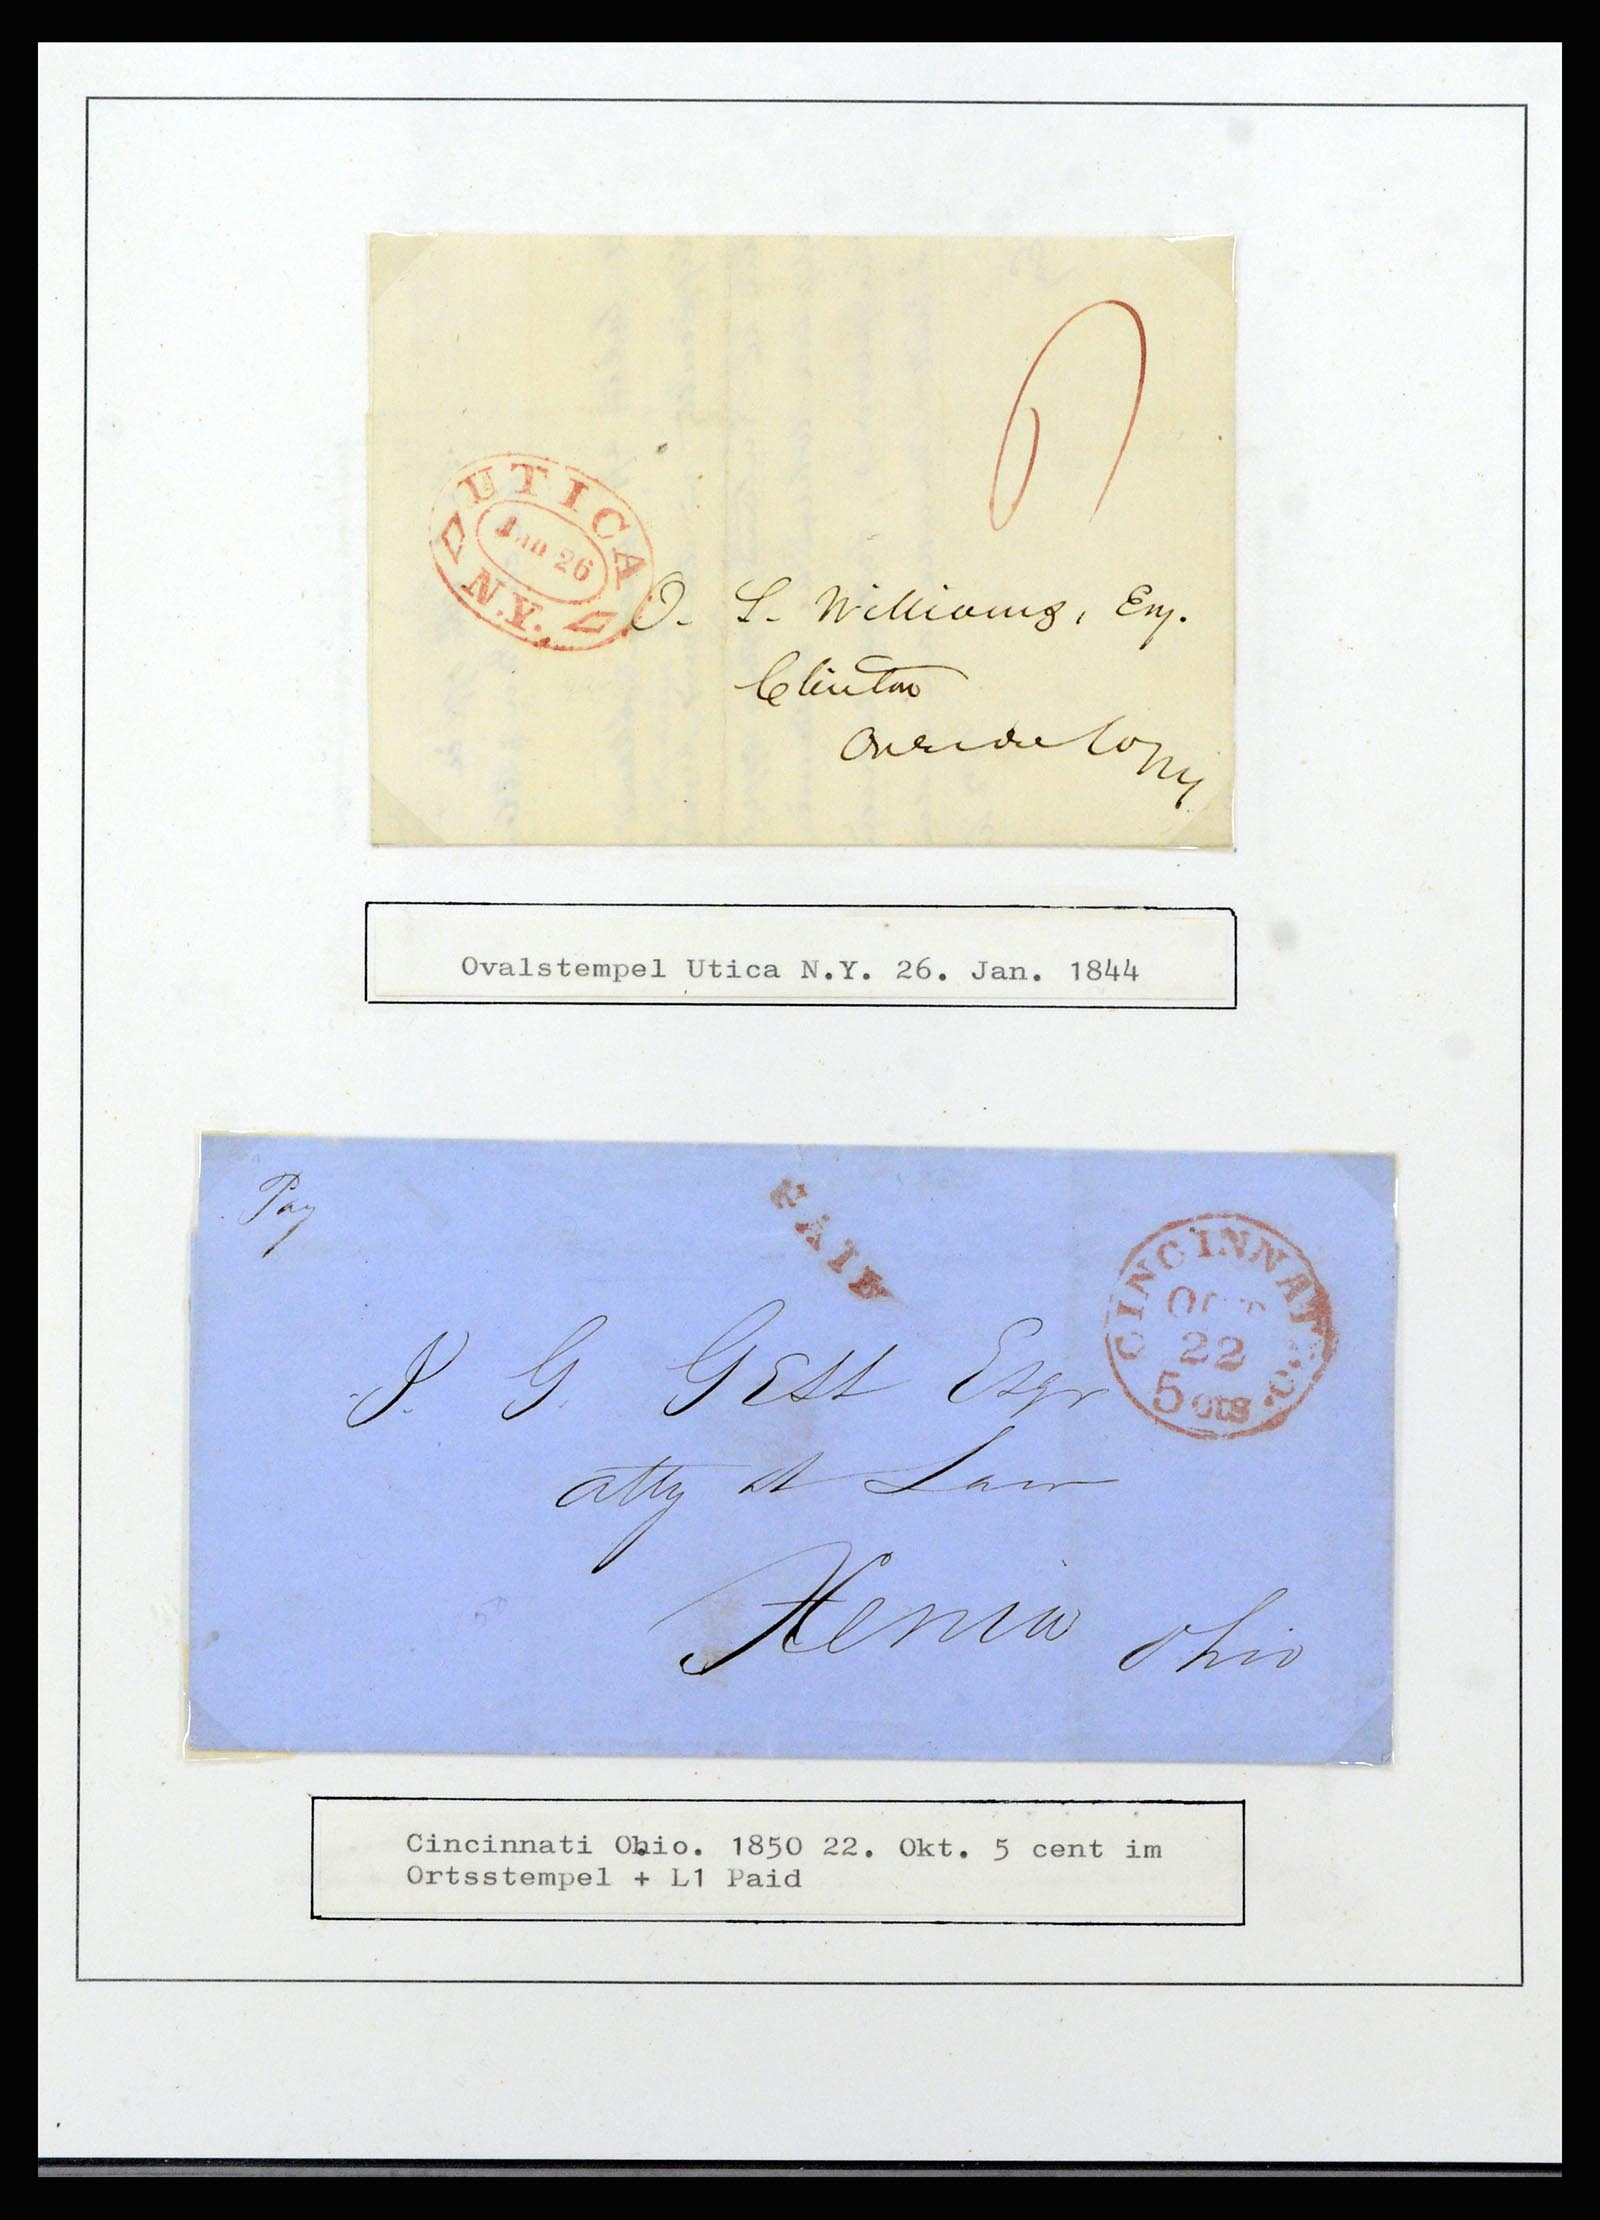 UTICA
Jan 26
N.Y.
O. S. Williams, Esq.
Clinton
Oneida Co NY
Ovalstempel Utica N.Y. 26. Jan. 1844
Pay
PAID
CINCINNATI O.
OCT
22
5 cts
J. G. Gest Esqr
atty at Law
Xenia Ohio
Cincinnati Ohio. 1850 22. Okt. 5 cent im
Ortsstempel + L1 Paid